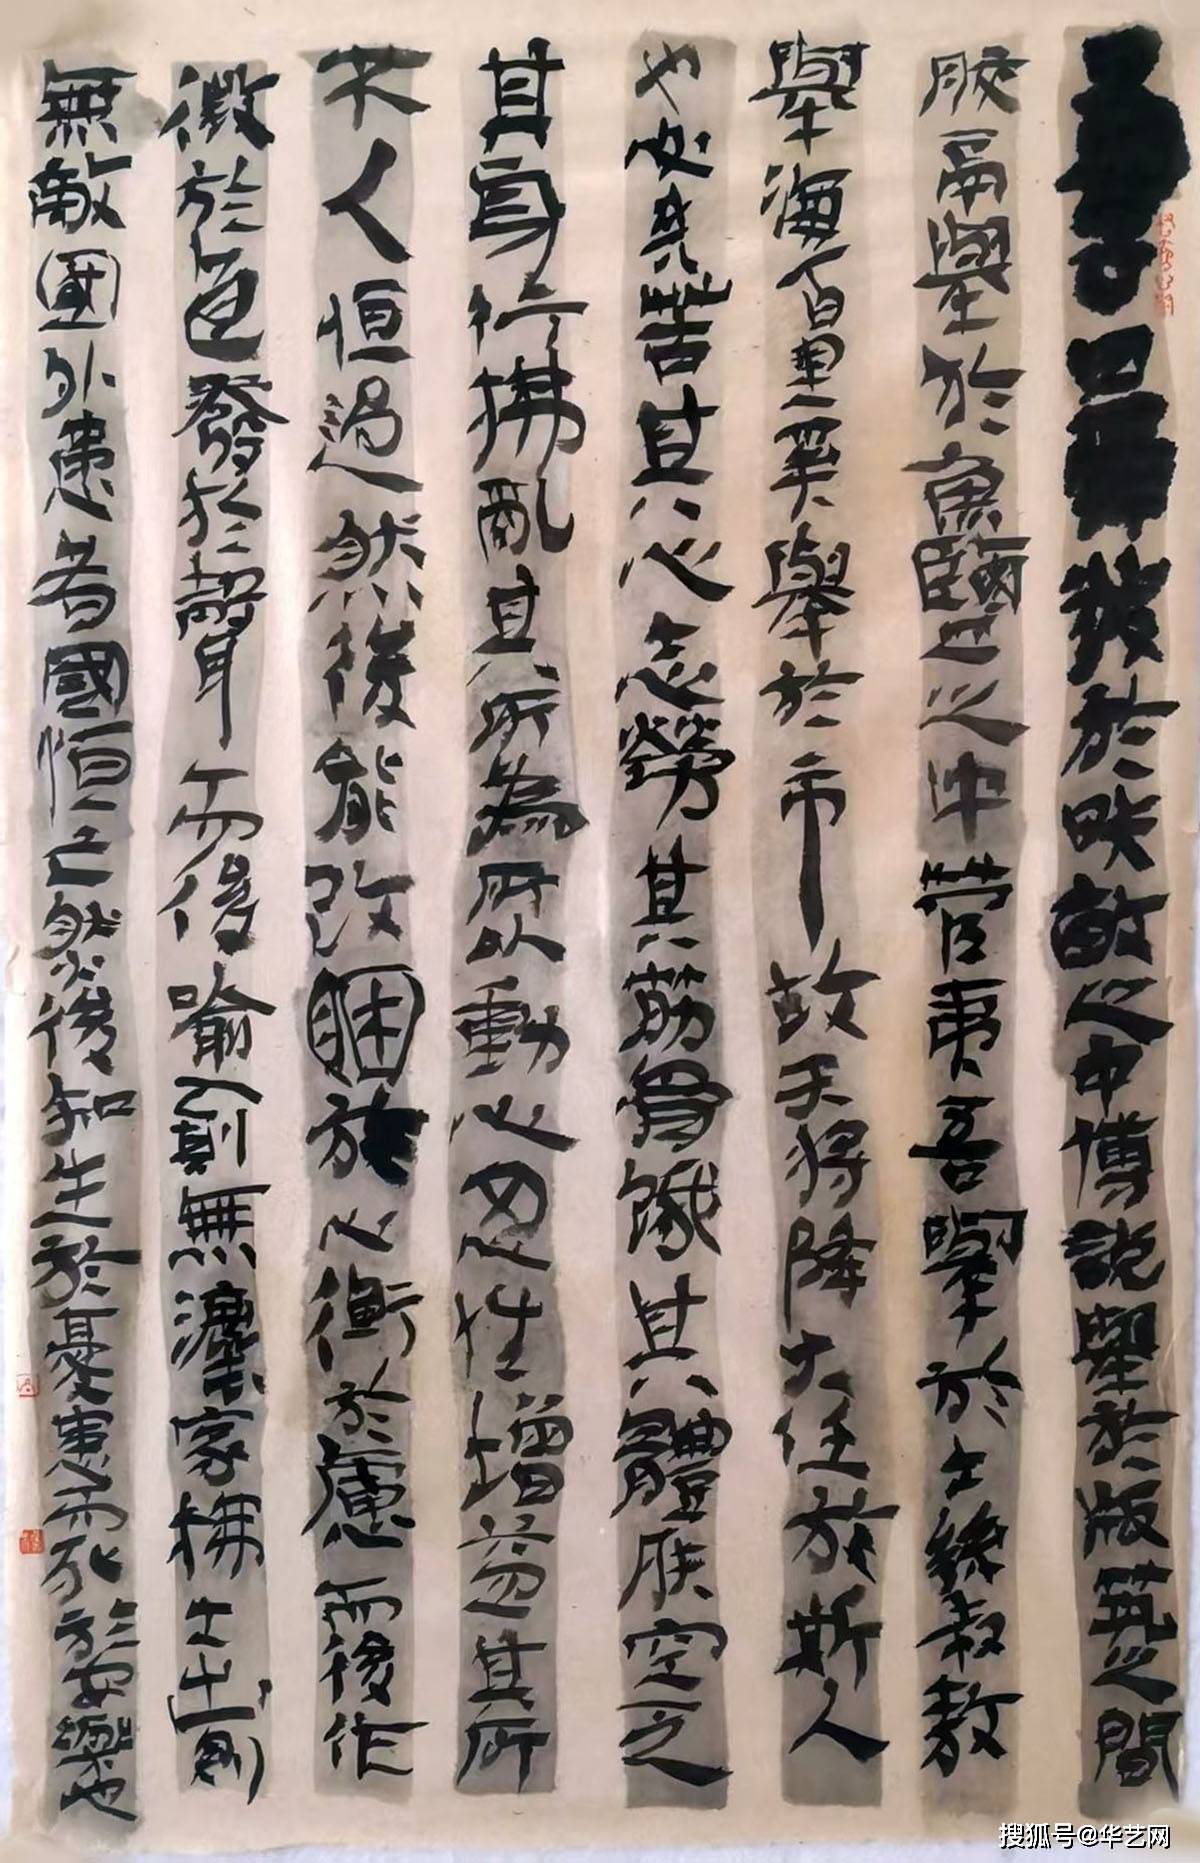 孟子曰舜發於畎畝之中傅說舉於版築之間
膠鬲舉於魚鹽之中管夷吾舉於士孫叔敖
舉海百里奚舉於市故天將降大任於斯人
也必先苦其心志勞其筋骨餓其體膚空乏
其身行拂亂其所為所以動心忍性增益其所
不人恒過然後能改困於心衡於慮而後作
徵於色發於聲而後喻入則無灋家拂士出則
無敵國外患者國恒亡然後知生於憂患而死於安樂也
搜狐号@华艺网